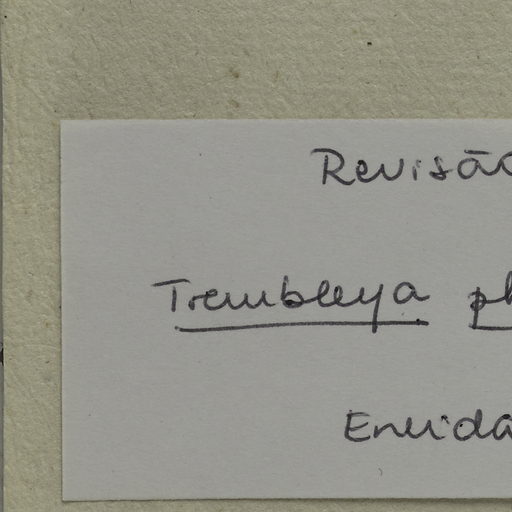 Revisão
Trembleya ph
Eneida